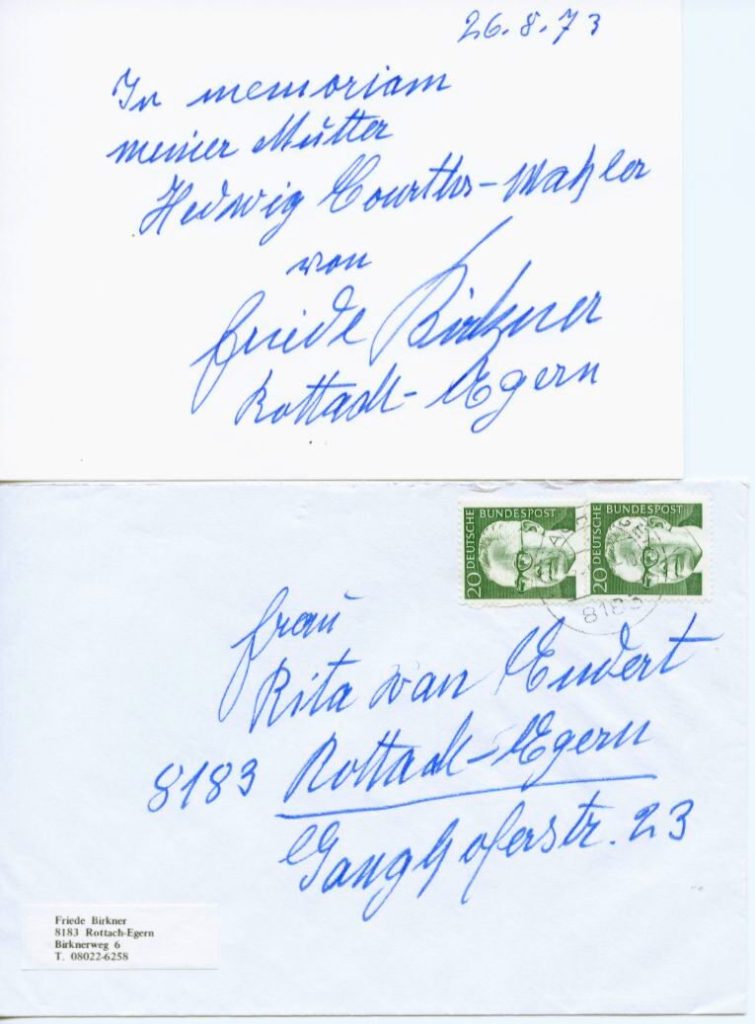 26.8.73
In memoriam
meiner Mutter
Hedwig Courths-Mahler
von
Friede Birkner
Rottach-Egern
20 DEUTSCHE BUNDESPOST
20 DEUTSCHE BUNDESPOST
8183
Frau
Rita van Endert
8183 Rottach-Egern
Ganghoferstr. 23
Friede Birkner
8183 Rottach-Egern
Birknerweg 6
T. 08022-6258